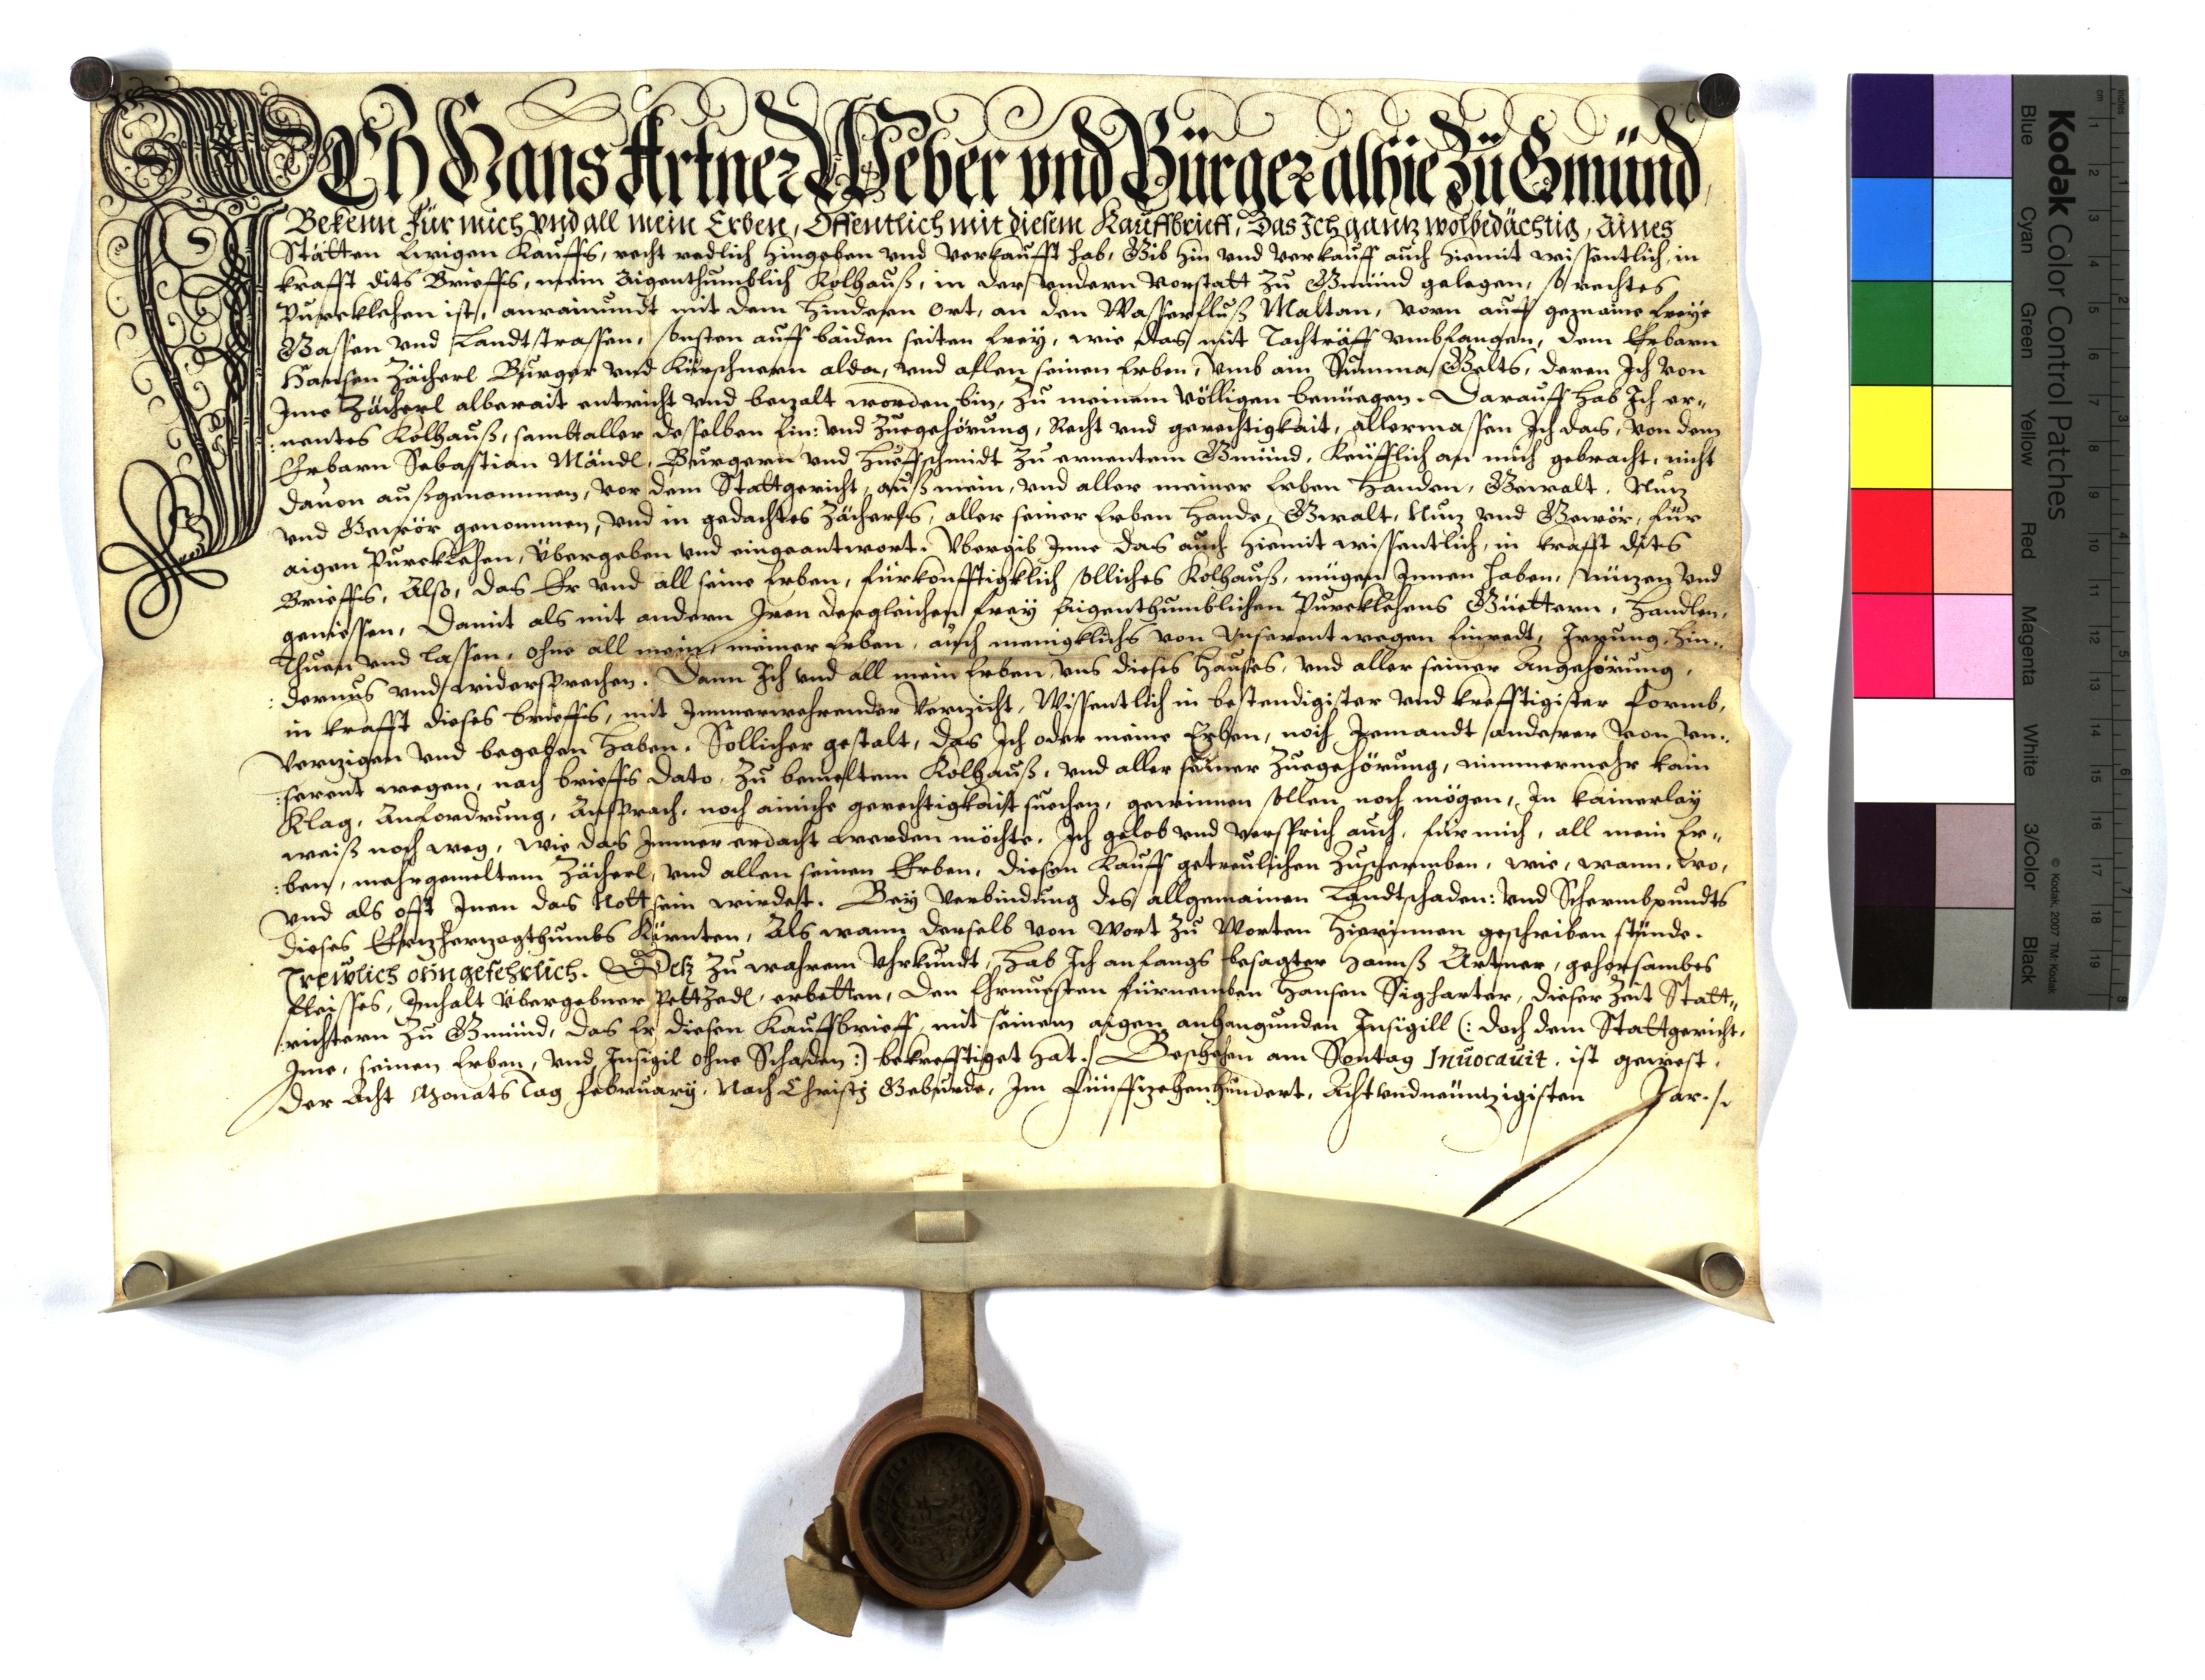 ICh Hans Artner Weber vnd Bürger alhie Zü Gmünd,
Bekenn für mich vnd all mein Erben, Offentlich mit diesem Kauffbrieff, Das Ich gantz wolbedächtig, Aines
Stätten Ewigen Kauffs, recht redlich hingeben vnd verkaufft hab, Gib hin vnd verkauff auch hiemit wissentlich, in
krafft dits Brieffs, mein Aigenthumblich Kolhauß, in der vndern Vorstatt zu Gmünd gelegen, so rechtes
Purcklehen ist, anrainundt mit dem hindern Ort, an den Wasserfluß Maltan, vorn auff gemaine freye
Gassen vnd Landtstrassen, sonsten auff baiden seiten frey, wie das mit Tachtraff vmbfangen, dem Erbarn
Hansen Zächerl Burger vnd Kürschnern alda, vnd allen seinen Erben, vmb ain Summa Gelts, deren Ich von
Ime Zächerl alberait entricht vnd bezalt worden bin, zu meinem völligen benüegen. Darauff hab Ich er„
:nentes Kolhauß, sambt aller desselben Ein: vnd Zuegehörung, Recht vnd gerechtigkait, allermassen Ich das, von dem
Erbarn Sebastian Mändl, Burgern vnd Hueffschmidt zu ernentem Gmünd, Keüfflich an mich gebracht, nicht
dauon außgenommen, vor dem Stattgericht, auß mein, vnd aller meiner Erben Handen, Gewalt, Nutz
vnd Gewör genommen, vnd in gedachtes Zächerls, aller seiner Erben Hande, Gwalt, Nutz vnd Gewör, für
aigen Purcklehen, übergeben vnd eingeantwort. Vbergib Ime das auch hiemit wissentlich, in krafft dits
Brieffs, Also, das Er vnd all seine Erben, fürkonfftigklich solliches Kolhauß, mügen Innen haben, nützen vnd
geniessen, Damit als mit andern Iren dergleichen frey Aigenthumblichen Purcklehens Güettern, Handlen,
Thuen vnd lassen, ohne all mein, meiner Erben, auch menigklichs von Vnserent wegen Einredt, Irrung, Hin„
:dernus vnd widersprechen. Dann Ich vnd all mein Erben, vns dieses Hauses, vnd aller seiner Angehörung,
in krafft dieses brieffs, mit Immerwehrender Verzicht, Wissentlich in bestendigister vnd krefftigister formb,
verzigen vnd begeben haben. Sollicher gestalt, das Ich oder meine Erben, noch Jemandt anderer von vn„
:serent wegen, nach brieffs dato, zu bemeltem Kolhauß, vnd aller seiner Zuegehörung, nimmermehr kain
Klag, Anfordrung, Ansprach, noch ainiche gerechtigkait suechen, gewinnen sollen noch mögen, In kainerlay
weiß noch weg, wie das Immer erdacht werden möchte. Ich gelob vnd versprich auch, für mich, all mein Er„
:ben, mehrgemeltem Zächerl, vnd allen seinen Erben, diesen Kauff getreulichen zuschermben, wie, wann, wo,
vnd als offt Inen das Nott sein wirdet. Bey verbindung des allgemainen Landtschaden: vnd Schermbpundts
dieses Ertzhertzogthumbs Kärnten, Als wann derselb von Wort zu Worten hierinnen geschriben stünde.
Trewlich ohngefehrlich. Deß zu wahrem Vhrkundt, hab Ich anfangs besagter Hannß Artner, gehorsambes
fleisses, Inhalt übergebner Pettzedl, erbetten, den Ehrnuesten fürnemben Hansen Sigharter, dieser Zeit Statt„
:richtern zu Gmünd, das Er diesen Kauffbrieff, mit seinem aigen anhangunden Insigill (: doch dem Stattgericht,
Ime, seinen Erben, vnd Insigil ohne Schaden :) bekrefftiget hat. Geschehen am Sontag Inuocauit, ist gewest,
der Acht Monats Tag february, Nach Christj Geburde, Im fünffzehenhundert, Acht vnd neüntzigisten Jar./.
Kodak Color Control Patches
Blue Cyan Green Yellow Red Magenta White 3/Color Black
© Kodak, 2007 TM: Kodak
cm 1 2 3 4 5 6 7 8 9 10 11 12 13 14 15 16 17 18 19
inches 1 2 3 4 5 6 7 8